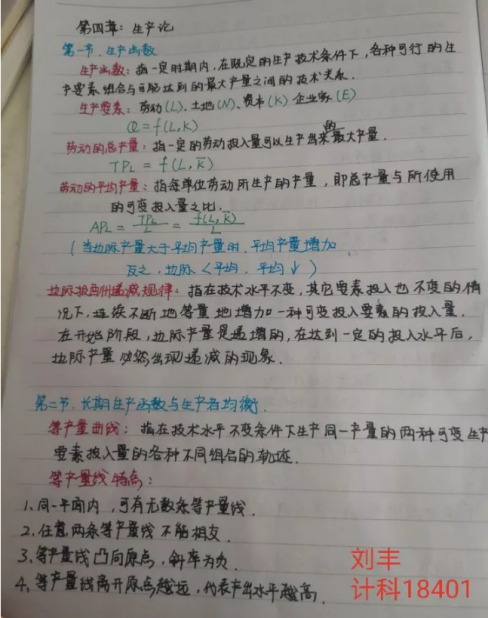 第四章：生产论
第一节、生产函数
生产函数：指一定时期内，在既定的生产技术条件下，各种可行的生
产要素组合与可能达到的最大产量之间的技术关系.
生产要素：劳动(L)、土地(N)、资本(K) 企业家(E)
Q = f(L,K)
劳动的总产量：指一定的劳动投入量可以生产出来的最大产量.
TPL = f(L,K̄)
劳动的平均产量：指每单位劳动所生产的产量，即总产量与所使用
的可变投入量之比.
APL = TPL/L = f(L,K̄)/L
(当边际产量大于平均产量时，平均产量增加
反之，边际<平均，平均↓)
边际报酬递减规律：指在技术水平不变，其它要素投入也不变的情
况下，连续不断地等量地增加一种可变投入要素的投入量.
在开始阶段，边际产量是递增的，在达到一定的投入水平后，
边际产量必然出现递减的现象.
第二节、长期生产函数与生产者均衡.
等产量曲线：指在技术水平不变条件下生产同一产量的两种可变生产
要素投入量的各种不同组合的轨迹.
等产量线特点：
1、同一平面内，可有无数条等产量线.
2、任意两条等产量线不能相交.
3、等产量线凸向原点，斜率为负.
4、等产量线离开原点越远，代表产出水平越高.
刘丰
计科18401